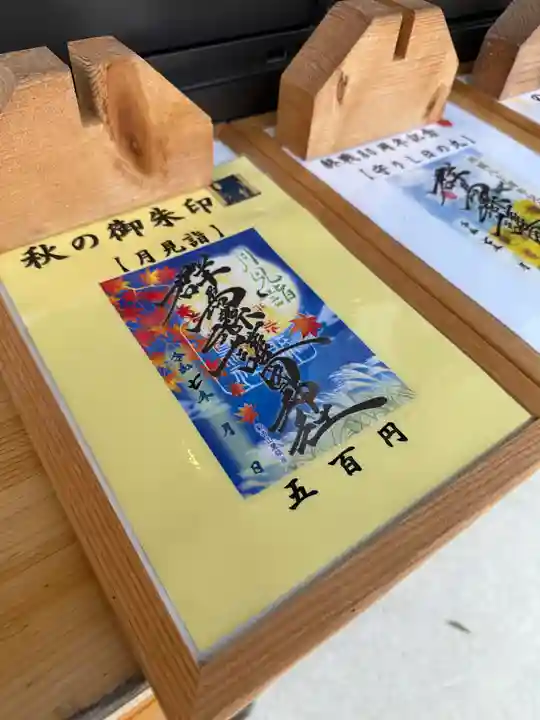 秋の御朱印
【月見詣】
月見詣
群馬県護国神社
令和七年 月 日
五百円
終戦80周年記念
【守りし日の丸】
群馬県護国神社